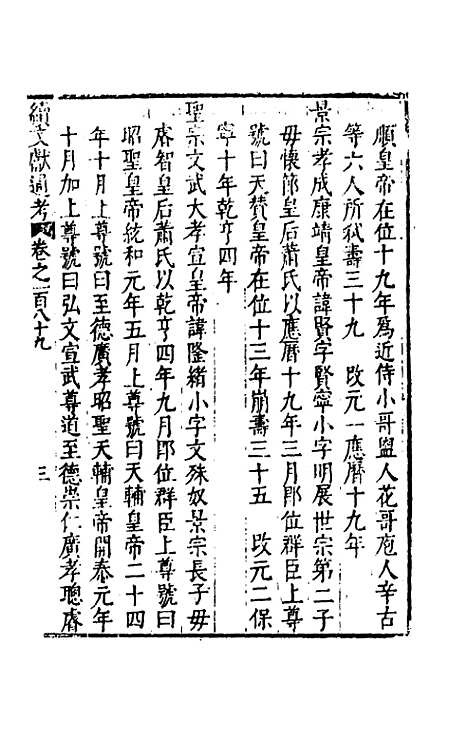 順皇帝在位十九年為近侍小哥盥人花哥庖人辛古
等六人所弒壽三十九　改元一應曆十九年
景宗孝成康靖皇帝諱賢字賢寧小字明扆世宗第二子
母懷節皇后蕭氏以應曆十九年三月即位群臣上尊
號曰天贊皇帝在位十三年崩壽三十五　改元二保
寧十年乾亨四年
聖宗文武大孝宣皇帝諱隆緒小字文殊奴景宗長子母
睿智皇后蕭氏以乾亨四年九月即位群臣上尊號曰
昭聖皇帝統和元年五月上尊號曰天輔皇帝二十四
年十月上尊號曰至德廣孝昭聖天輔皇帝開泰元年
十月加上尊號曰弘文宣武尊道至德崇仁廣孝聰睿
續文獻通考 卷之一百八十九 三